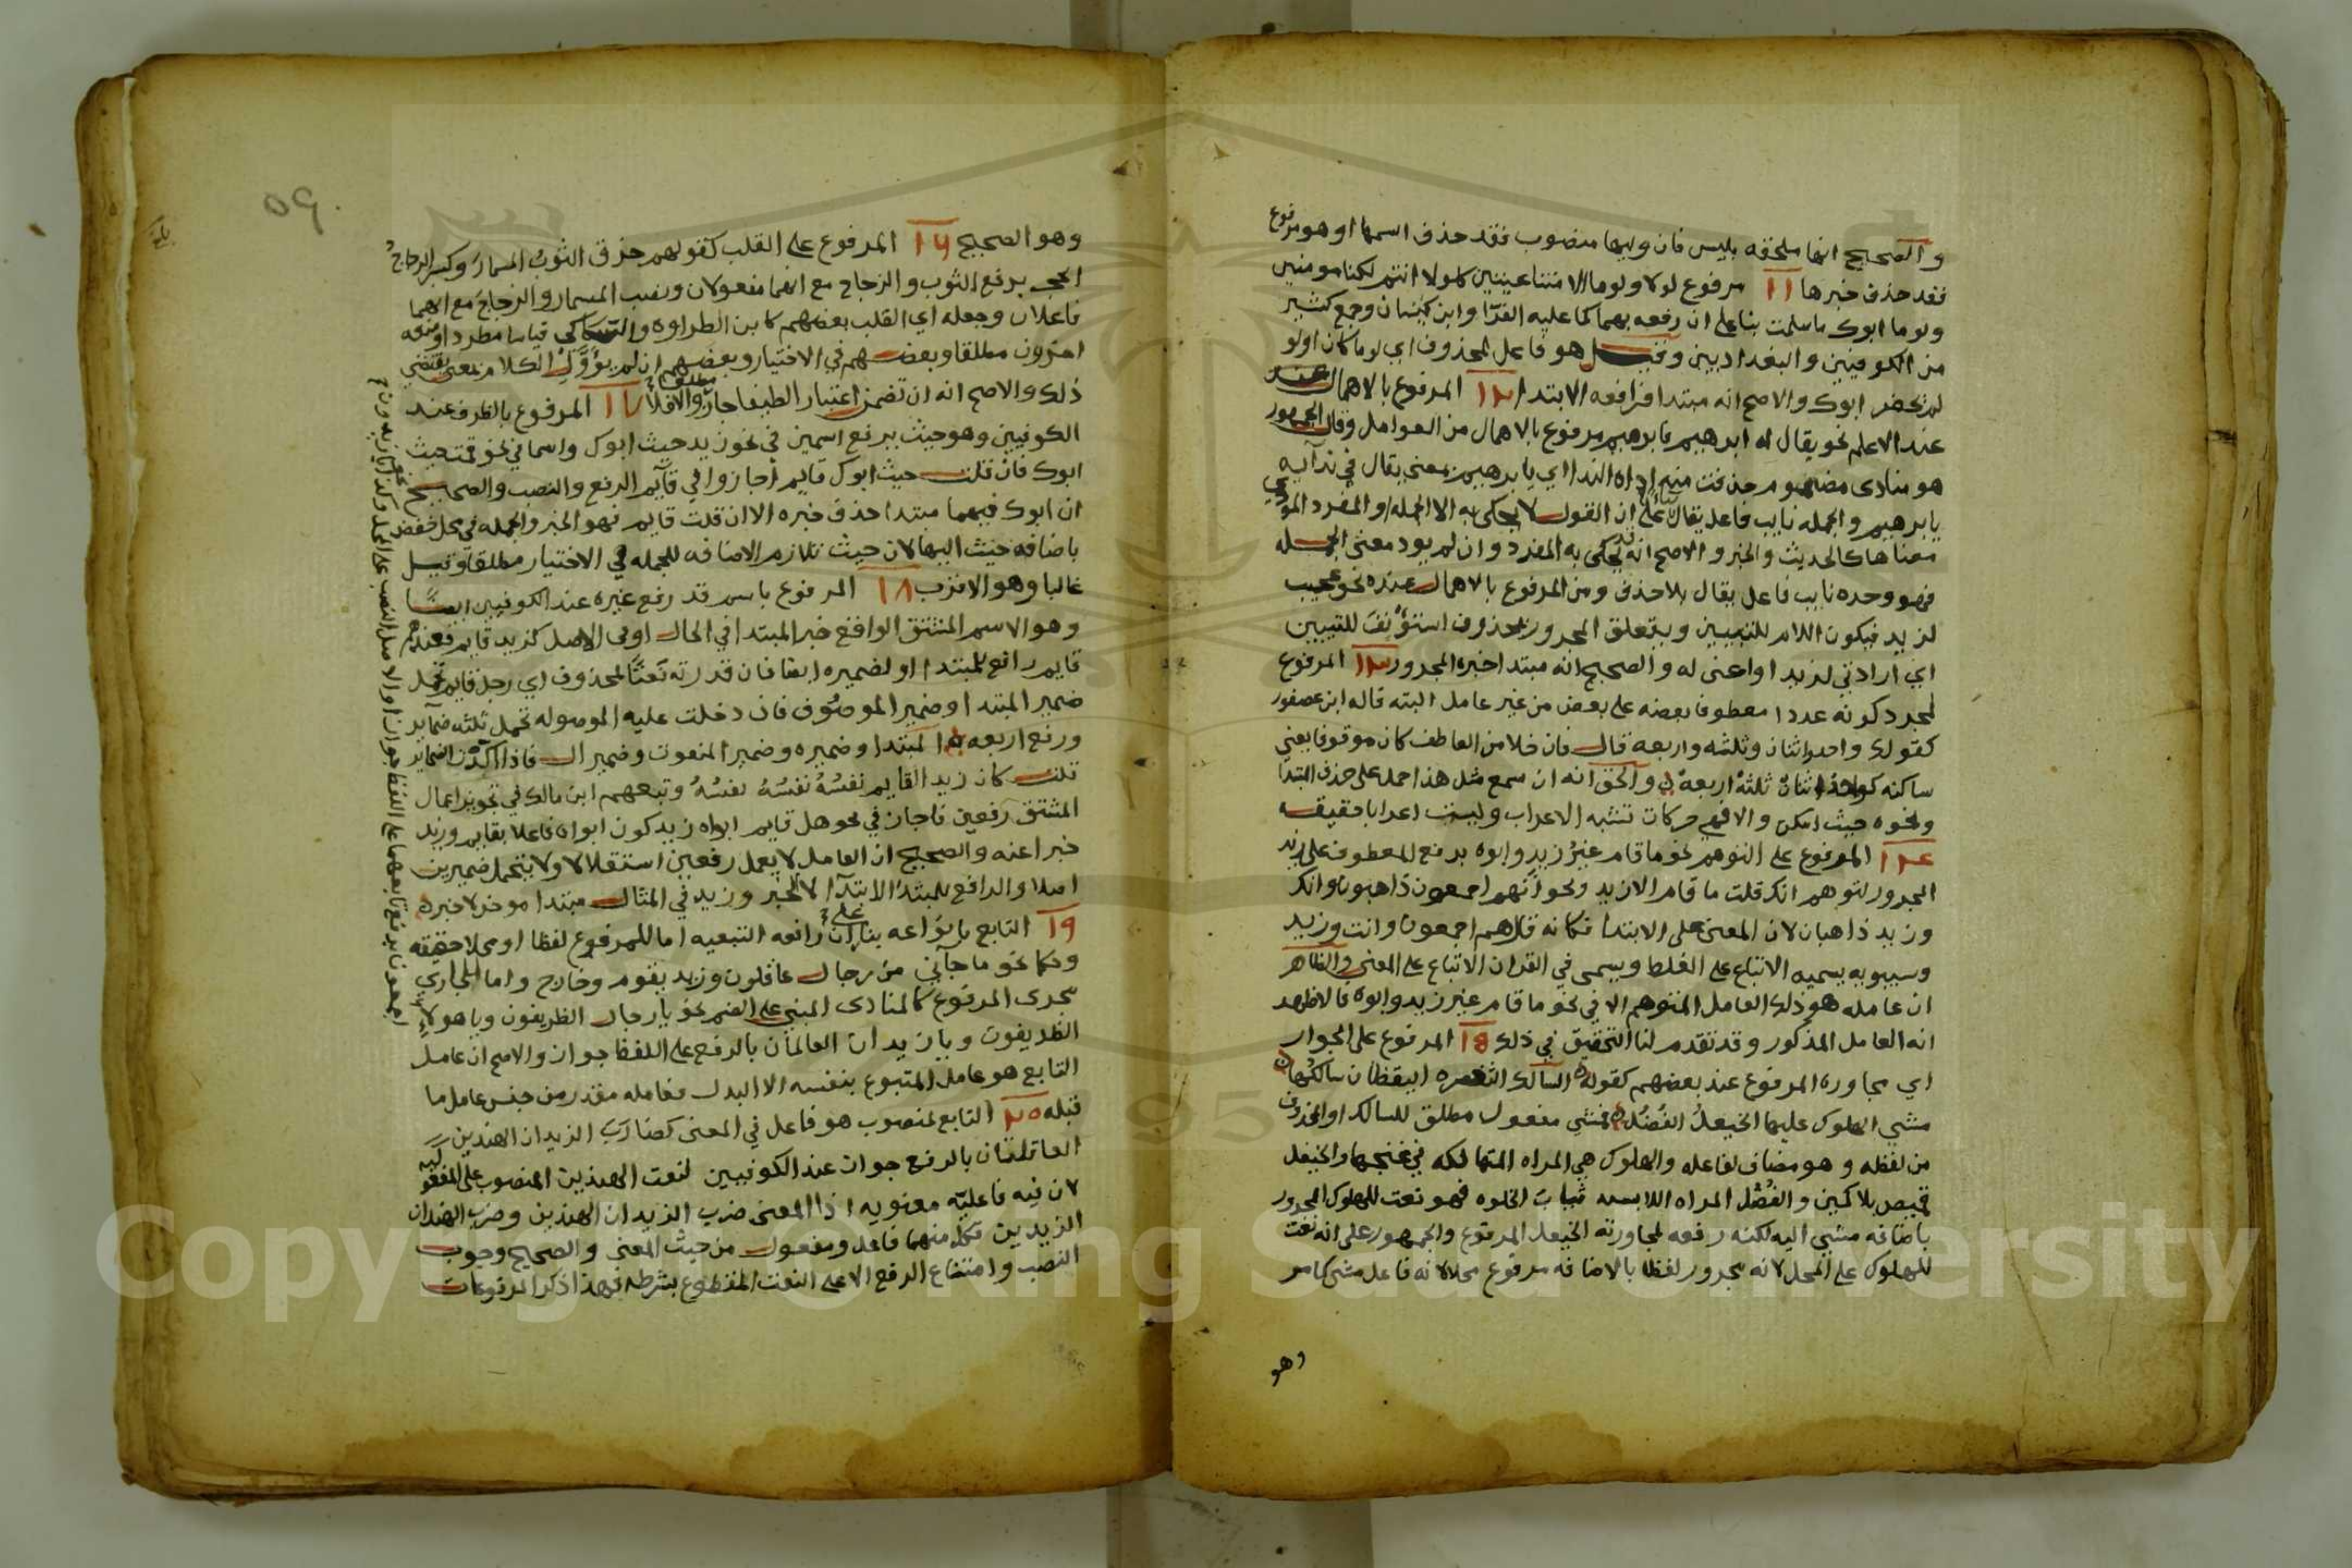 والصحيح انها ملحقه بليس فان وليها منصوب فقد حذف اسمها او هو مرفوع
فقد حذف خبرها ١١ مرفوع لولا ولوما الامتناعيتين كلولا انتم لكنا مومنين
ولوما ابوك ما سلمت بنا على ان رفعه بهما كما عليه الفرّا وابن كيسان وجمع كثير
من الكوفيين والبغداديين وقيل هو فاعل لمحذوف اي لوما كان اولو
لم تحضر ابوك والاصح انه مبتدا فرافعه الابتدا ١٢ المرفوع بالاهمال عند
عند الاعلم نحو يقال له ابرهيم فابرهيم مرفوع بالاهمال من العوامل وقال الجمهور
هو منادى مضموم حذفت منه اداه الندا اي يا ابرهيم بمعنى يقال في ندآيه
يا برهيم والجمله نايب فاعل يقال بنا على ان القول لا يحكى به الا الجمله او المفرد المودي
معناها كالحديث والخبر والاصح انه قد يحكى به المفرد وان لم يود معنى الجمله
فهو وحده نايب فاعل يقال بلا حذف ومن المرفوع بالاهمال عنده نحو عجيب
لزيد فيكون اللام للتبيين ويتعلق المجرور بمحذوف استؤنف للتبيين
اي ارادتي لزيد او اعنى له والصحيح انه مبتدا خبره المجرور ١٣ المرفوع
لمجرد كونه عددا معطوفا بعضه على بعض من غير عامل البته قاله ابن عصفور
كقولك واحد واثنان وثلثه واربعه قال فان خلا من العاطف كان موقوفا يعني
ساكنه كواحد اثنان ثلثهْ اربعهْ والحق انه ان سمع مثل هذا حمل على حذف المبتدا
ونحوه حيث امكن والافهي حركات تشبه الاعراب وليست اعرابا حقيقه
١٤ المرفوع على التوهم نحو ما قام غيرُ زيد وابوه برفع المعطوف على زيد
المجرور لتوهم انك قلت ما قام الا زيد ونحو انهم اجمعون ذاهبون وانك
وزيد ذاهبان لان المعنى على الابتدا فكانه قال هم اجمعون وانت وزيد
وسيبويه يسميه الاتباع على الغلط ويسمى في القران الاتباع على المعنى والظاهر
ان عامله هو ذلك العامل المتوهم الا في نحو ما قام غير زيد وابوه فالاظهر
انه العامل المذكور وقد تقدم لنا التحقيق في ذلك ١٥ المرفوع على الجوار
اي مجاوره المرفوع عند بعضهم كقوله السالك الثغره اليقظان سالكُها
مشي الهلوك عليها الخيعلُ الفُضُلُ فمشى مفعول مطلق للسالك او لمحذوف
من لفظه وهو مضاف لفاعله والهلوك هي المراه المتهالكه في غنجها والخيعل
قميص بلا كمين والفُضُل المراه اللابسه ثياب الخلوه فهو نعت للهلوك المجرور
باضافه مشي اليه لكنه رفعه لمجاورته الخيعل المرفوع والجمهور على انه نعت
للهلوك على المحل لانه مجرور لفظا بالاضافه مرفوع محلا لانه فاعل مشي كما مر
وهو
٥٩
وهو الصحيح ١٦ المرفوع على القلب كقولهم خرق الثوبُ المسمارَ وكسر الزجاجُ
الحجر برفع الثوب والزجاج مع انهما مفعولان ونصب المسمار والزجاج مع انهما
فاعلان وجعله اي القلب بعضهم كابن الطراوه والسكاكي قياسا مطردا ومنعه
اخرون مطلقا وبعضهم في الاختيار وبعضهم ان لم يؤوَّل الكلام بمعنى يقتضي
ذلك والاصح انه ان تضمن اعتبار الطيفا جاز والا فلا مطلقا ١٧ المرفوع بالظرف عند
الكوفيين وهو حيث يرفع اسمين في نحو زيد حيث ابوك واسما في نحو قمت حيث
ابوك فان قلت حيث ابوك قايم اجازوا في قآيم الرفع والنصب والصحيح
ان ابوك فيهما مبتدا حذف خبره الا ان قلت قايم فهو الخبر والجمله في محل خفض
باضافه حيث اليها لان حيث تلازم الاضافه للجمله في الاختيار مطلقا وقيل
غالبا وهو الاقرب ١٨ المرفوع باسم قد رفع غيره عند الكوفيين ايضًا
وهو الاسم المشتق الواقع خبر المبتدا في الحال او في الاصل كزيد قايم فعندهم
قايم رافع للمبتدا او لضميره ايضا فان قدرته نعتًا لمحذوف اي رجل قايم تحمل
ضمير المبتدا وضمير الموصوف فان دخلت عليه الموصوله تحمل ثلثه ضمآير
ورفع اربعه المبتدا وضميره وضمير المنعوت وضمير ال فاذا اكدت الضماير
قلت كان زيد القايم نفسُهُ نفسُهُ نفسُهُ وتبعهم ابن مالك في تجويز اعمال
المشتق رفعين فاجاز في نحو هل قايم ابواه زيد كون ابواه فاعلا بقايم وزيد
خبرا عنه والصحيح ان العامل لا يعمل رفعين استقلالا ولا يتحمل ضميرين
اصلا والرافع للمبتدا الابتدآ لا الخبر وزيد في المثال مبتدا موخر لا خبره
١٩ التابع بانواعه بنا على ان رافعه التبعيه اما للمرفوع لفظا او محلا حقيقه
وحكما نحو ما جآني من رجال عاقلون وزيد يقوم وخارج واما للجاري
مجرى المرفوع كالمنادى المبني على الضم نحو يا رجال الظريفون ويا هولاء
الظريفون ويا زيدان العالمان بالرفع على اللفظ جوازا والاصح ان عامل
التابع هو عامل المتبوع بنفسه الا البدل فعامله مقدر من جنس عامل ما
قبله ٢٠ التابع لمنصوب هو فاعل في المعنى كضارب الزيدان الهندين
العاقلتان بالرفع جوازا عند الكوفيين لنعت الهندين المنصوب على المفعوليه
لان فيه فاعليّه معنويه اذ المعنى ضرب الزيدان الهندين وضرب الهندان
الزيدين فكل منهما فاعل ومفعول من حيث المعنى والصحيح وجوب
النصب وامتناع الرفع الا على النعت المقطوع بشرطه فهذا ذكر المرفوعات
Copyright © King Saud University